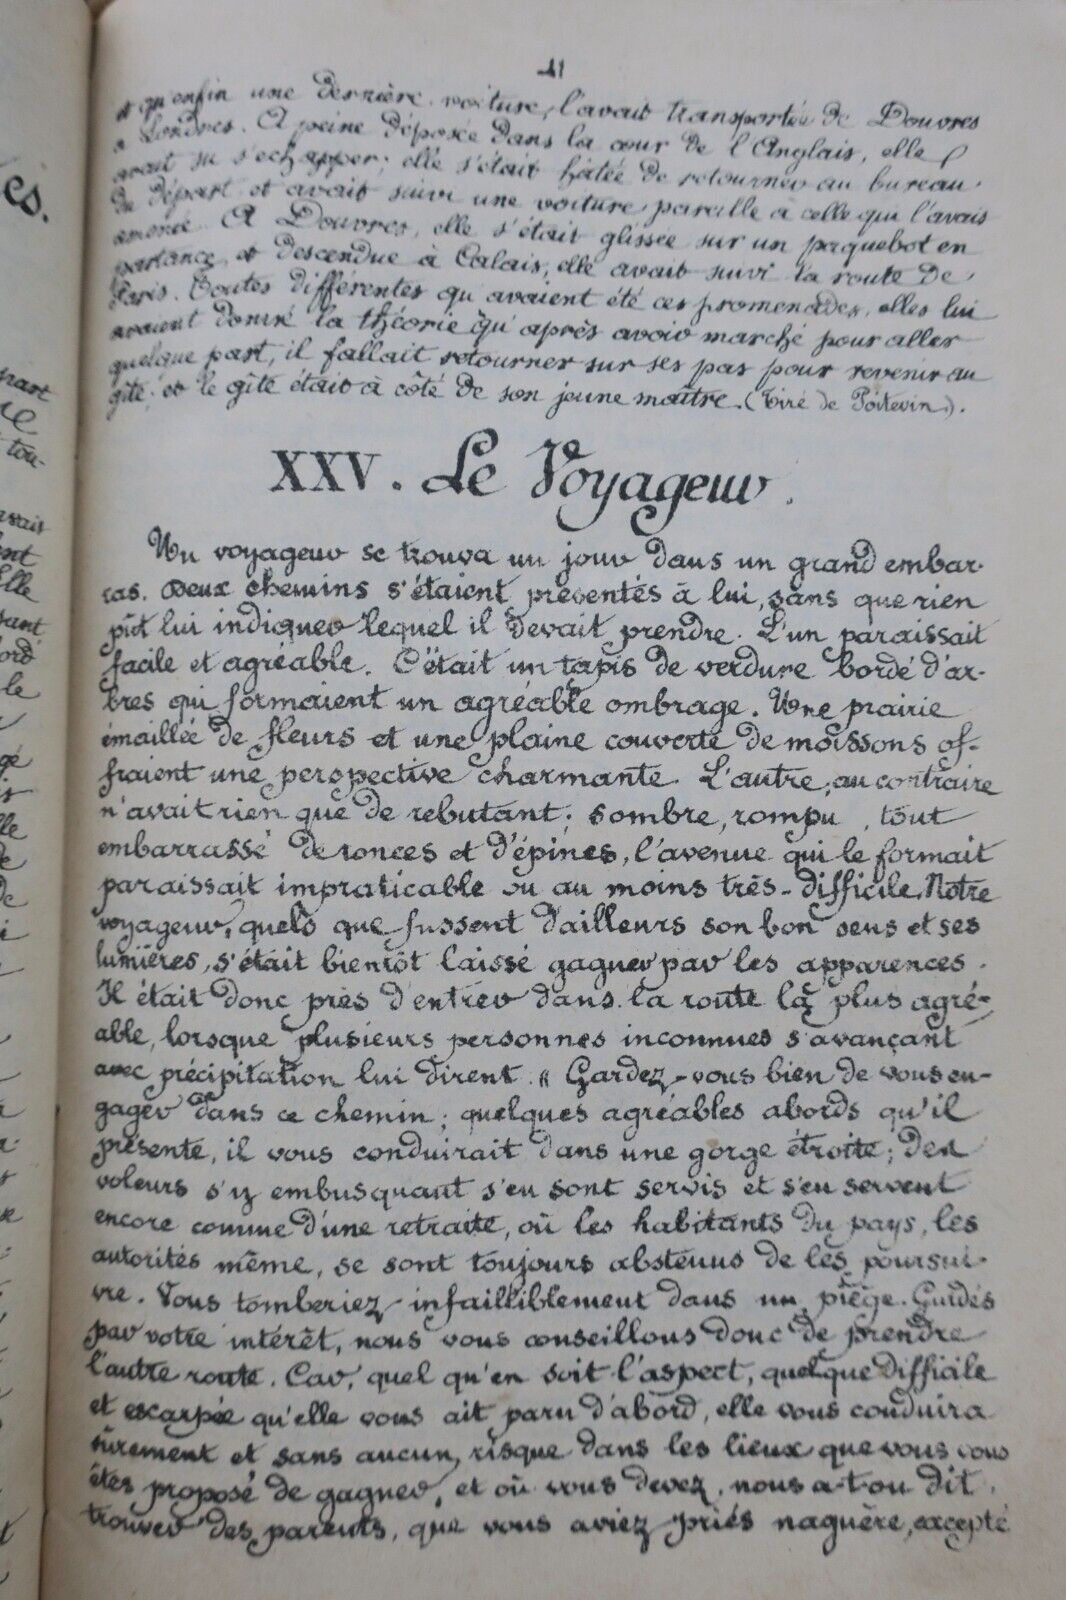 41
et qu'enfin une dernière voiture, l'avait transportée de Douvres
à Londres. A peine déposée dans la cour de l'Anglais, elle
avait su s'echapper; elle s'était hâtée de retourner au bureau
du départ et avait suivi une voiture pareille à celle qui l'avait
amenée. A Douvres, elle s'était glissée sur un paquebot en
partance, et descendue à Calais, elle avait suivi la route de
Paris. Toutes différentes qu'avaient été ces promenades, elles lui
avaient donné la théorie qu'après avoir marché pour aller
quelque part, il fallait retourner sur ses pas pour revenir au
gîte; et le gîte était à côté de son jeune maître. (Tiré de Poitevin.).
XXV. Le Voyageur.
Un voyageur se trouva un jour dans un grand embar-
ras. Deux chemins s'étaient présentés à lui, sans que rien
pût lui indiquer lequel il devait prendre. L'un paraissait
facile et agréable. C'était un tapis de verdure bordé d'ar-
bres qui formaient un agréable ombrage. Une prairie
émaillée de fleurs et une plaine couverte de moissons of-
fraient une perspective charmante. L'autre, au contraire
n'avait rien que de rebutant; sombre, rompu, tout
embarrassé de ronces et d'épines, l'avenue qui le formait
paraissait impraticable ou au moins très-difficile. Notre
voyageur, quels que fussent d'ailleurs son bon sens et ses
lumières, s'était bientôt laissé gagner par les apparences.
Il était donc près d'entrer dans la route la plus agré-
able, lorsque plusieurs personnes inconnues s'avançant
avec précipitation lui dirent. « Gardez-vous bien de vous en-
gager dans ce chemin; quelques agréables abords qu'il
présente, il vous conduirait dans une gorge étroite; des
voleurs s'y embusquant s'en sont servis et s'en servent
encore comme d'une retraite, où les habitants du pays, les
autorités même, se sont toujours abstenus de les poursui-
vre. Vous tomberiez infailliblement dans un piège. Guidés
par votre intérêt, nous vous conseillons donc de prendre
l'autre route. Car, quel qu'en soit l'aspect, quelque difficile
et escarpée qu'elle vous ait paru d'abord, elle vous conduira
sûrement et sans aucun risque dans les lieux que vous vous
êtes proposé de gagner, et où vous devez, nous a-t-on dit,
trouver des parents, que vous aviez priés naguère, excepté